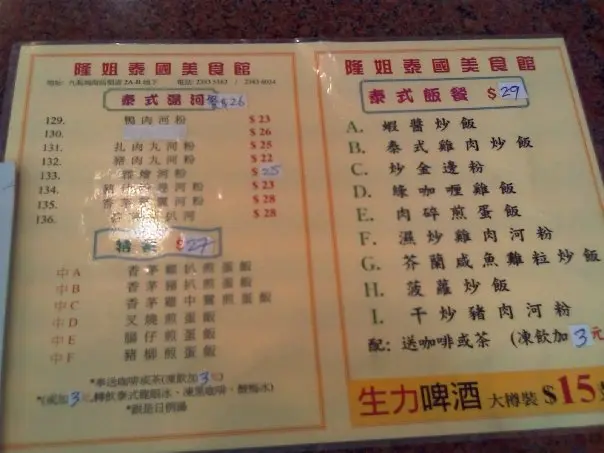 隆姐泰國美食館
泰式湯河 餐$26
129. 鴨肉河粉 $23
130. $26
131. 扎肉丸河粉 $25
132. 豬肉丸河粉 $22
133. 河粉 $25
134. 河粉 $23
135. 河粉 $28
136. 扒河 $28
特餐 $27
中A 香茅雞扒煎蛋飯
中B 香茅豬扒煎蛋飯
中C 香茅雞中翼煎蛋飯
中D 叉燒煎蛋飯
中E 腸仔煎蛋飯
中F 豬柳煎蛋飯
*奉送咖啡或茶(凍飲加3元)
*跟是日例湯
隆姐泰國美食館
泰式飯餐 $29
A. 蝦醬炒飯
B. 泰式雞肉炒飯
C. 炒金邊粉
D. 綠咖喱雞飯
E. 肉碎煎蛋飯
F. 濕炒雞肉河粉
G. 芥蘭咸魚雞粒炒飯
H. 菠蘿炒飯
I. 干炒豬肉河粉
配: 送咖啡或茶 (凍飲加3元
生力啤酒 大樽裝 $15